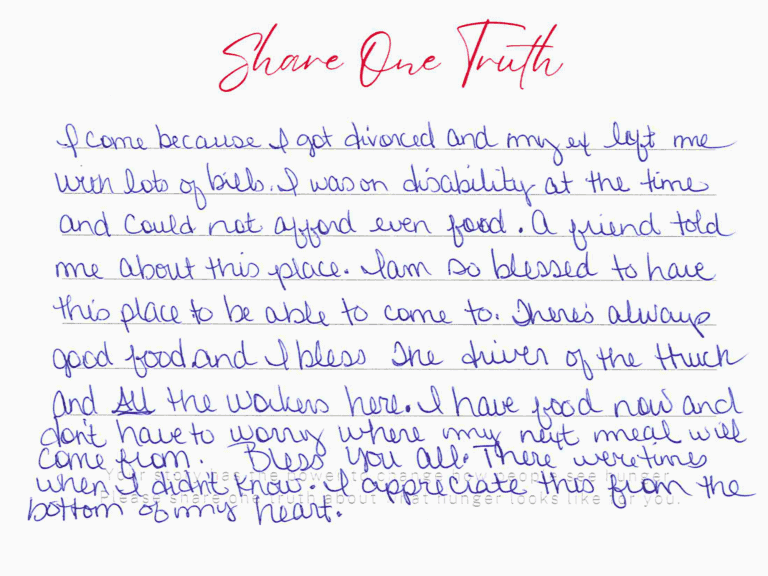 Share One Truth
I come because I got divorced and my ex left me
with lots of bills. I was on disability at the time
and could not afford even food. A friend told
me about this place. I am so blessed to have
this place to be able to come to. There's always
good food and I bless the driver of the truck
and All the workers here. I have food now and
don't have to worry where my next meal will
come from. Bless you all. There were times
Your story has the power to change how people see hunger.
when I didn't know. I appreciate this from the
Please share one truth about what hunger looks like for you.
bottom of my heart.